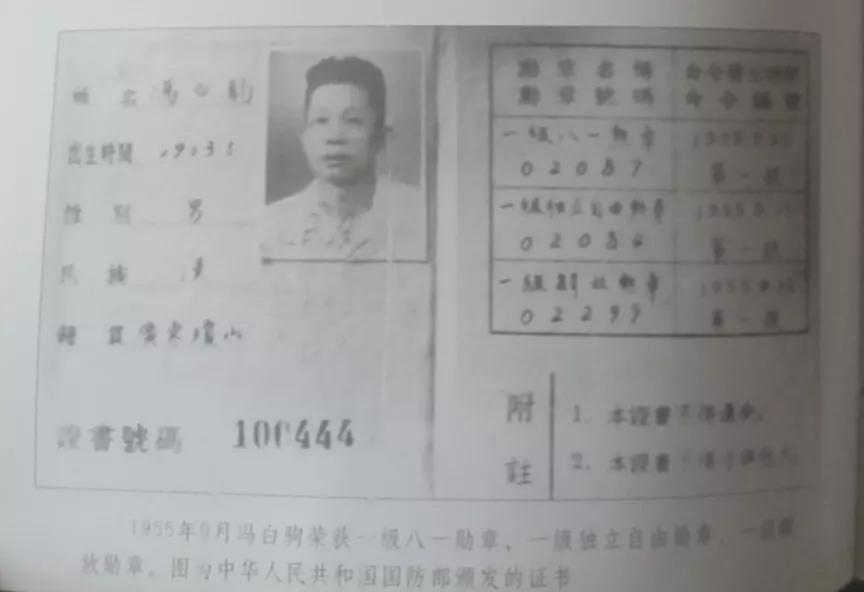 姓名 馮白駒
出生時間 1903
性别 男
民族 漢
籍貫 廣東瓊山
證書號碼 100444
勳章名稱 命令發出時間
勳章號碼 命令編號
一級八一勳章 1955.9
02087 第一號
一級獨立自由勳章 1955.9
0208 第一號
一級解放勳章 1955.9
02299 第一號
附註
1. 本證書不得遺失。
2. 本證書不得
1955年9月冯白驹荣获一级八一勋章、一级独立自由勋章、一级解
放勋章。图为中华人民共和国国防部颁发的证书